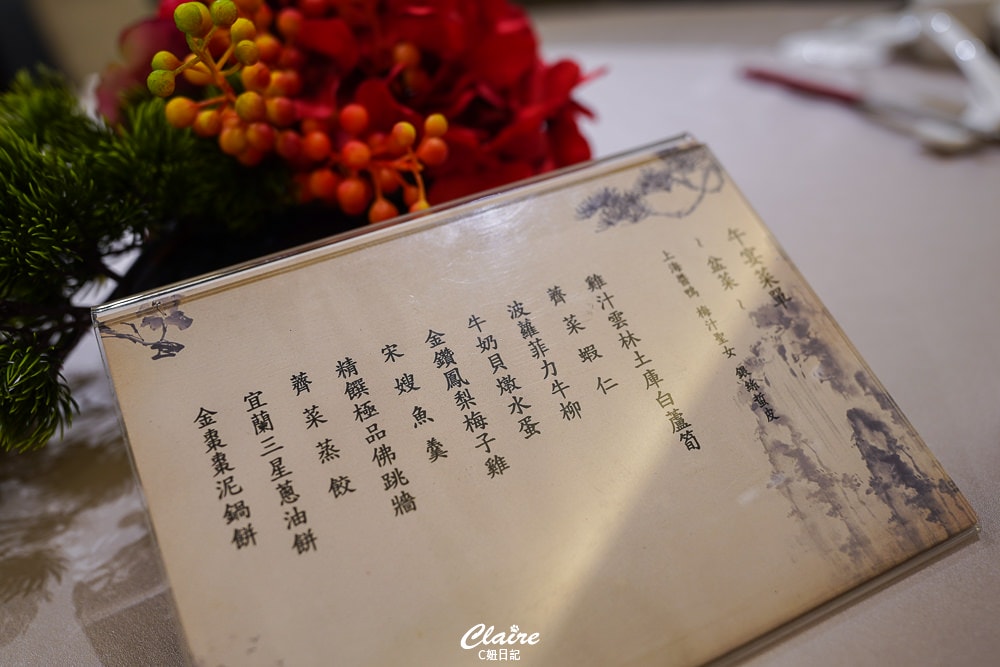 午宴菜單
~ 盆菜 ~
上海醬鴨 梅汁聖女 銀絲蜇皮
雞汁雲林土庫白蘆筍
薺菜蝦仁
波蘿菲力牛柳
牛奶貝燉水蛋
金鑽鳳梨梅子雞
宋嫂魚羹
精饌極品佛跳牆
薺菜蒸餃
宜蘭三星蔥油餅
金棗棗泥鍋餅
Claire
C妞日記